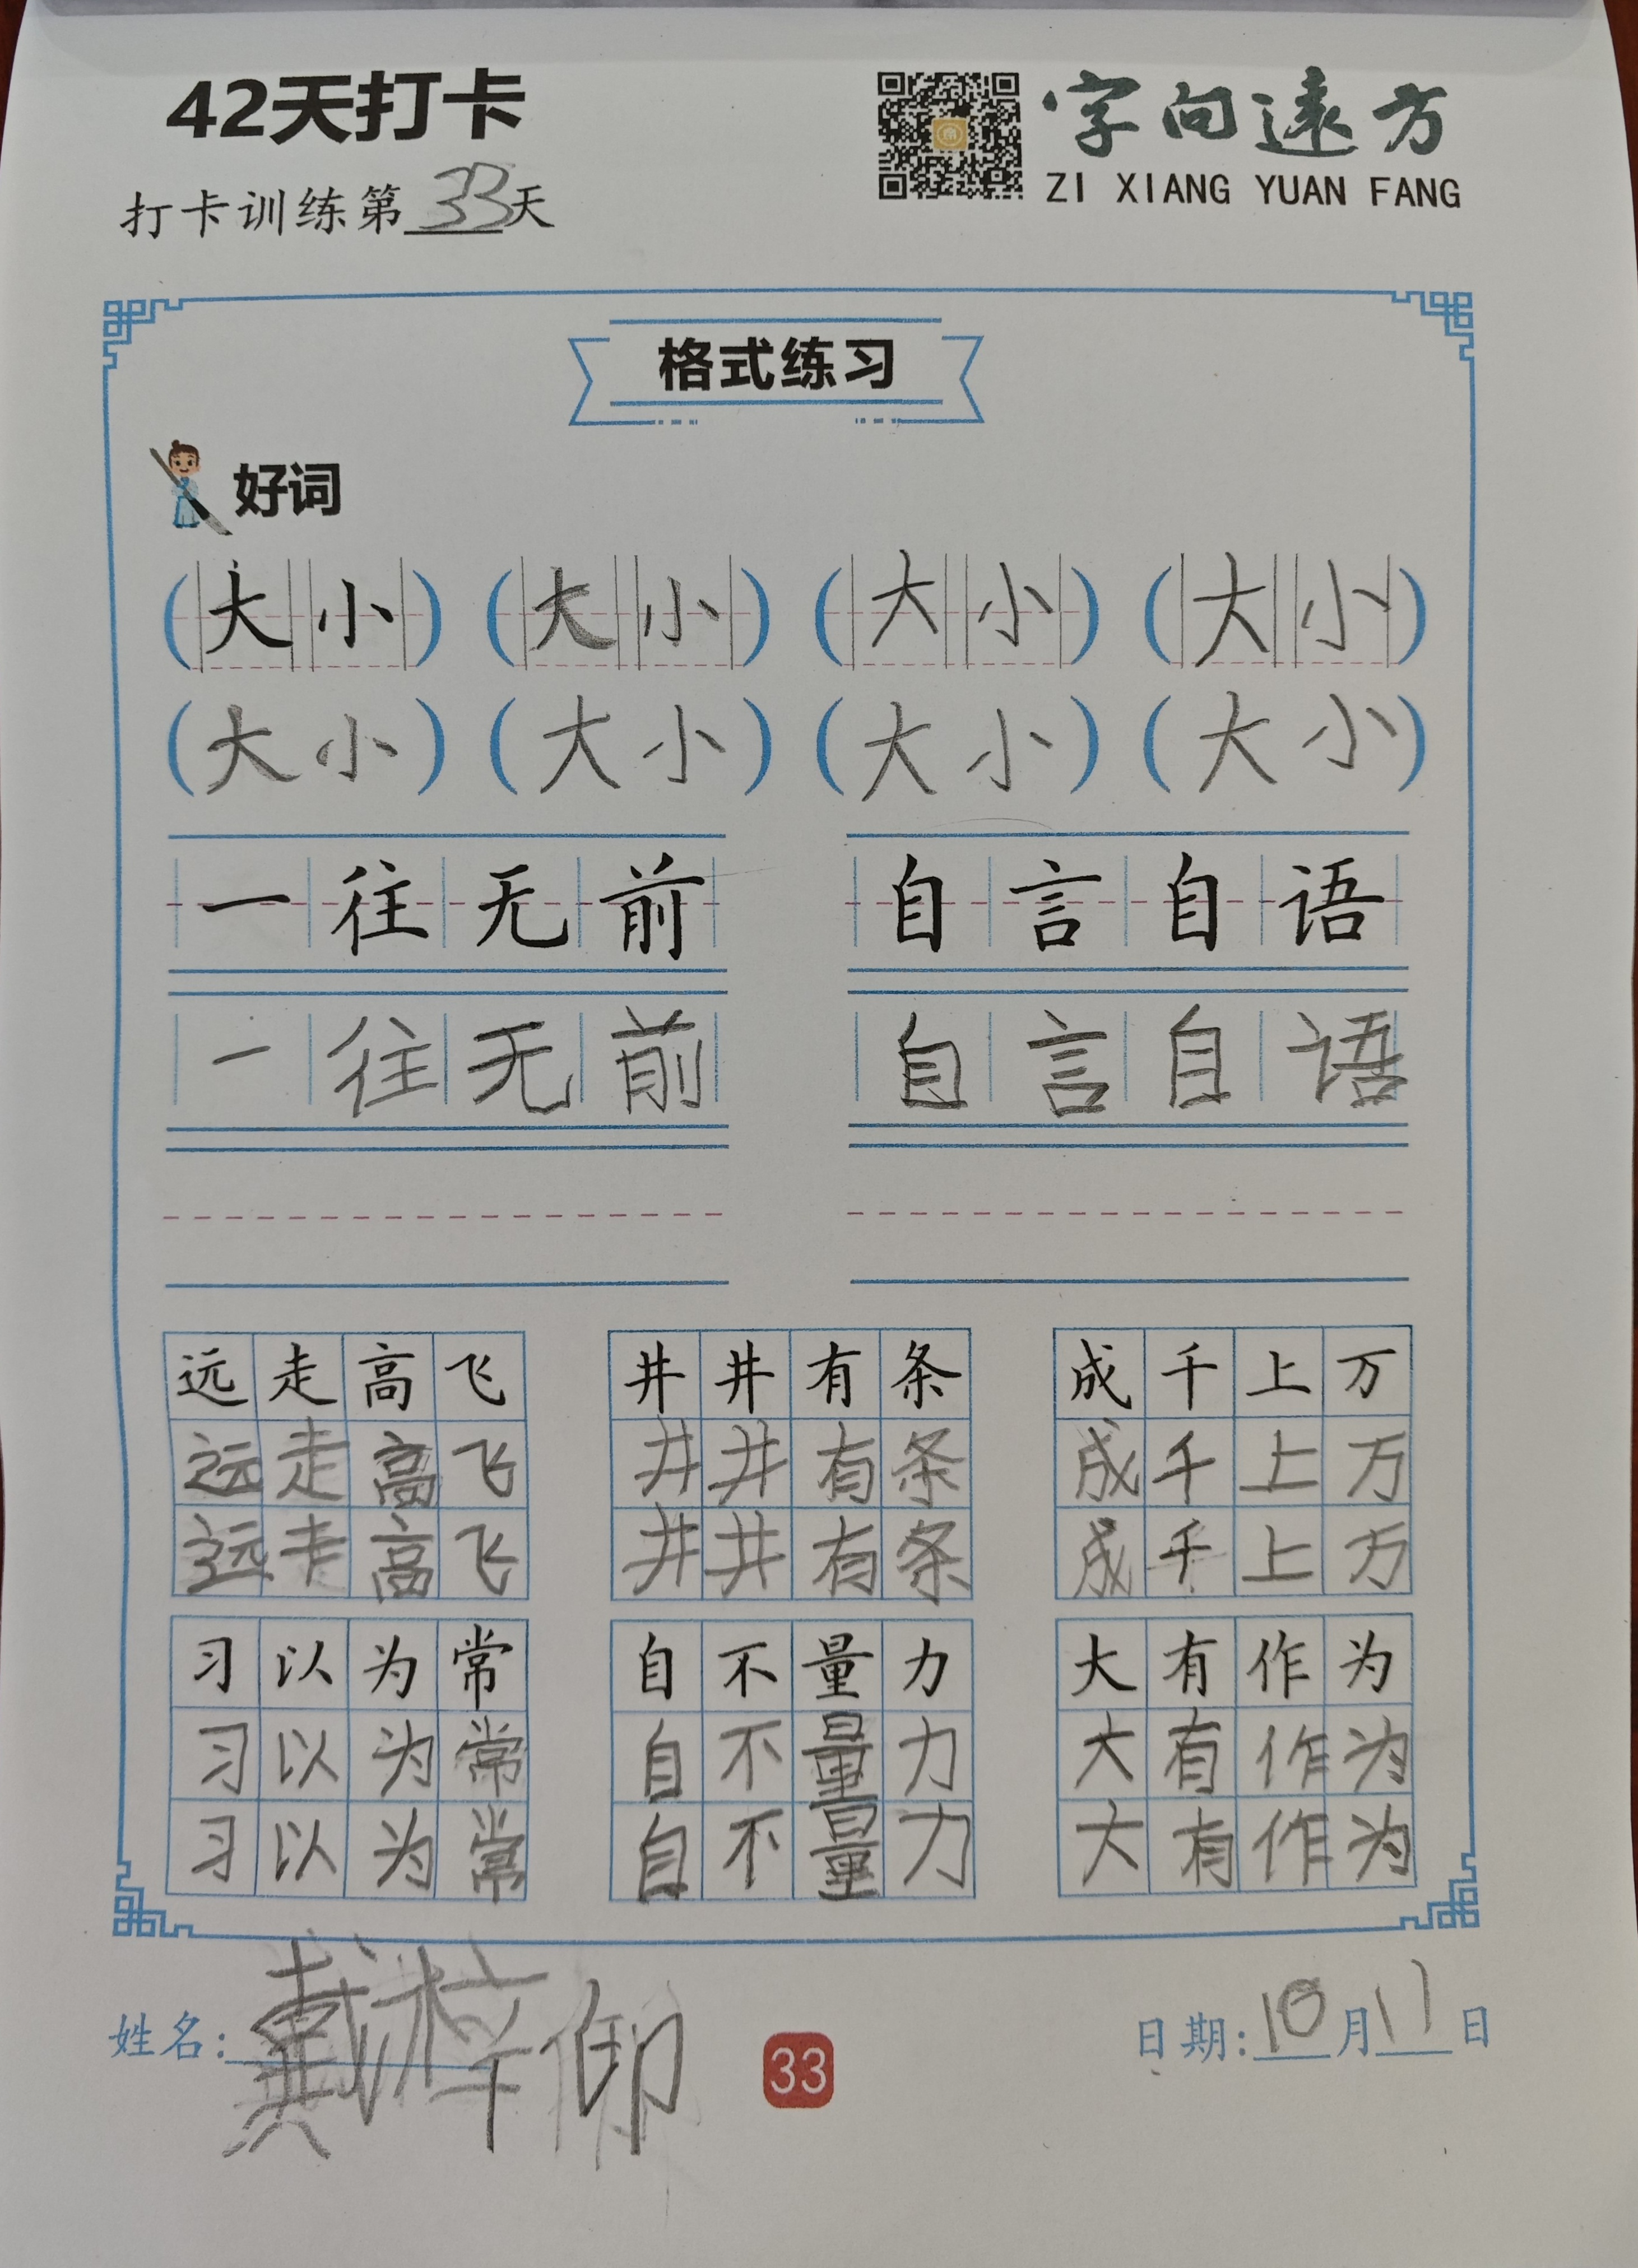 42天打卡
字向远方
ZI XIANG YUAN FANG
打卡训练第33天
格式练习
好词
(大小) (大小) (大小) (大小)
(大小) (大小) (大小) (大小)
一往无前 自言自语
一往无前 自言自语
远走高飞 井井有条 成千上万
远走高飞 井井有条 成千上万
远走高飞 井井有条 成千上万
习以为常 自不量力 大有作为
习以为常 自不量力 大有作为
习以为常 自不量力 大有作为
姓名:戴梓仰
33
日期:10月17日